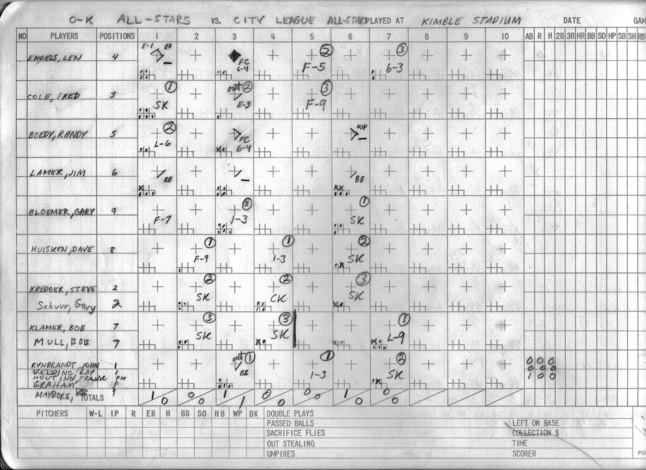 O-K ALL-STARS VS. CITY LEAGUE ALL-STARS PLAYED AT KIMBLE STADIUM DATE GAM
NO PLAYERS POSITIONS 1 2 3 4 5 6 7 8 9 10 AB R H 2B 3B HR BB SO HP SB SH RB
ENGELS, LEN 4 E-1 BB FC 6-4 2 F-5 3 6-3
COLE, FRED 3 1 SK out 2 E-3 3 F-9
BOEDY, RANDY 5 2 L-6 FC 6-4 WP
LAMER, JIM 6 BB BB
BLOEMER, GARY 9 F-7 3 1-3 1 SK
HUISKEN, DAVE 8 1 F-9 1 1-3 2 SK
KREUGER, STEVE 2 2 SK 2 CK 3 SK
Schuur, Gary 2
KLAMER, BOB 7 3 SK 3 SK 1 L-9
MULL, BOB 7
RYNBRANDT, JOHN 1 out 1 BB 1 1-3 2 SK 0 0 0
0 0 0
1 0 0
GRAHAM
TOTALS 1 0 0 0 1 1 0 0 0 0 1 0 0 0
PITCHERS W-L IP R ER H BB SO HB WP BK DOUBLE PLAYS
PASSED BALLS LEFT ON BASE
SACRIFICE FLIES COLLECTION $
OUT STEALING TIME
UMPIRES SCORER